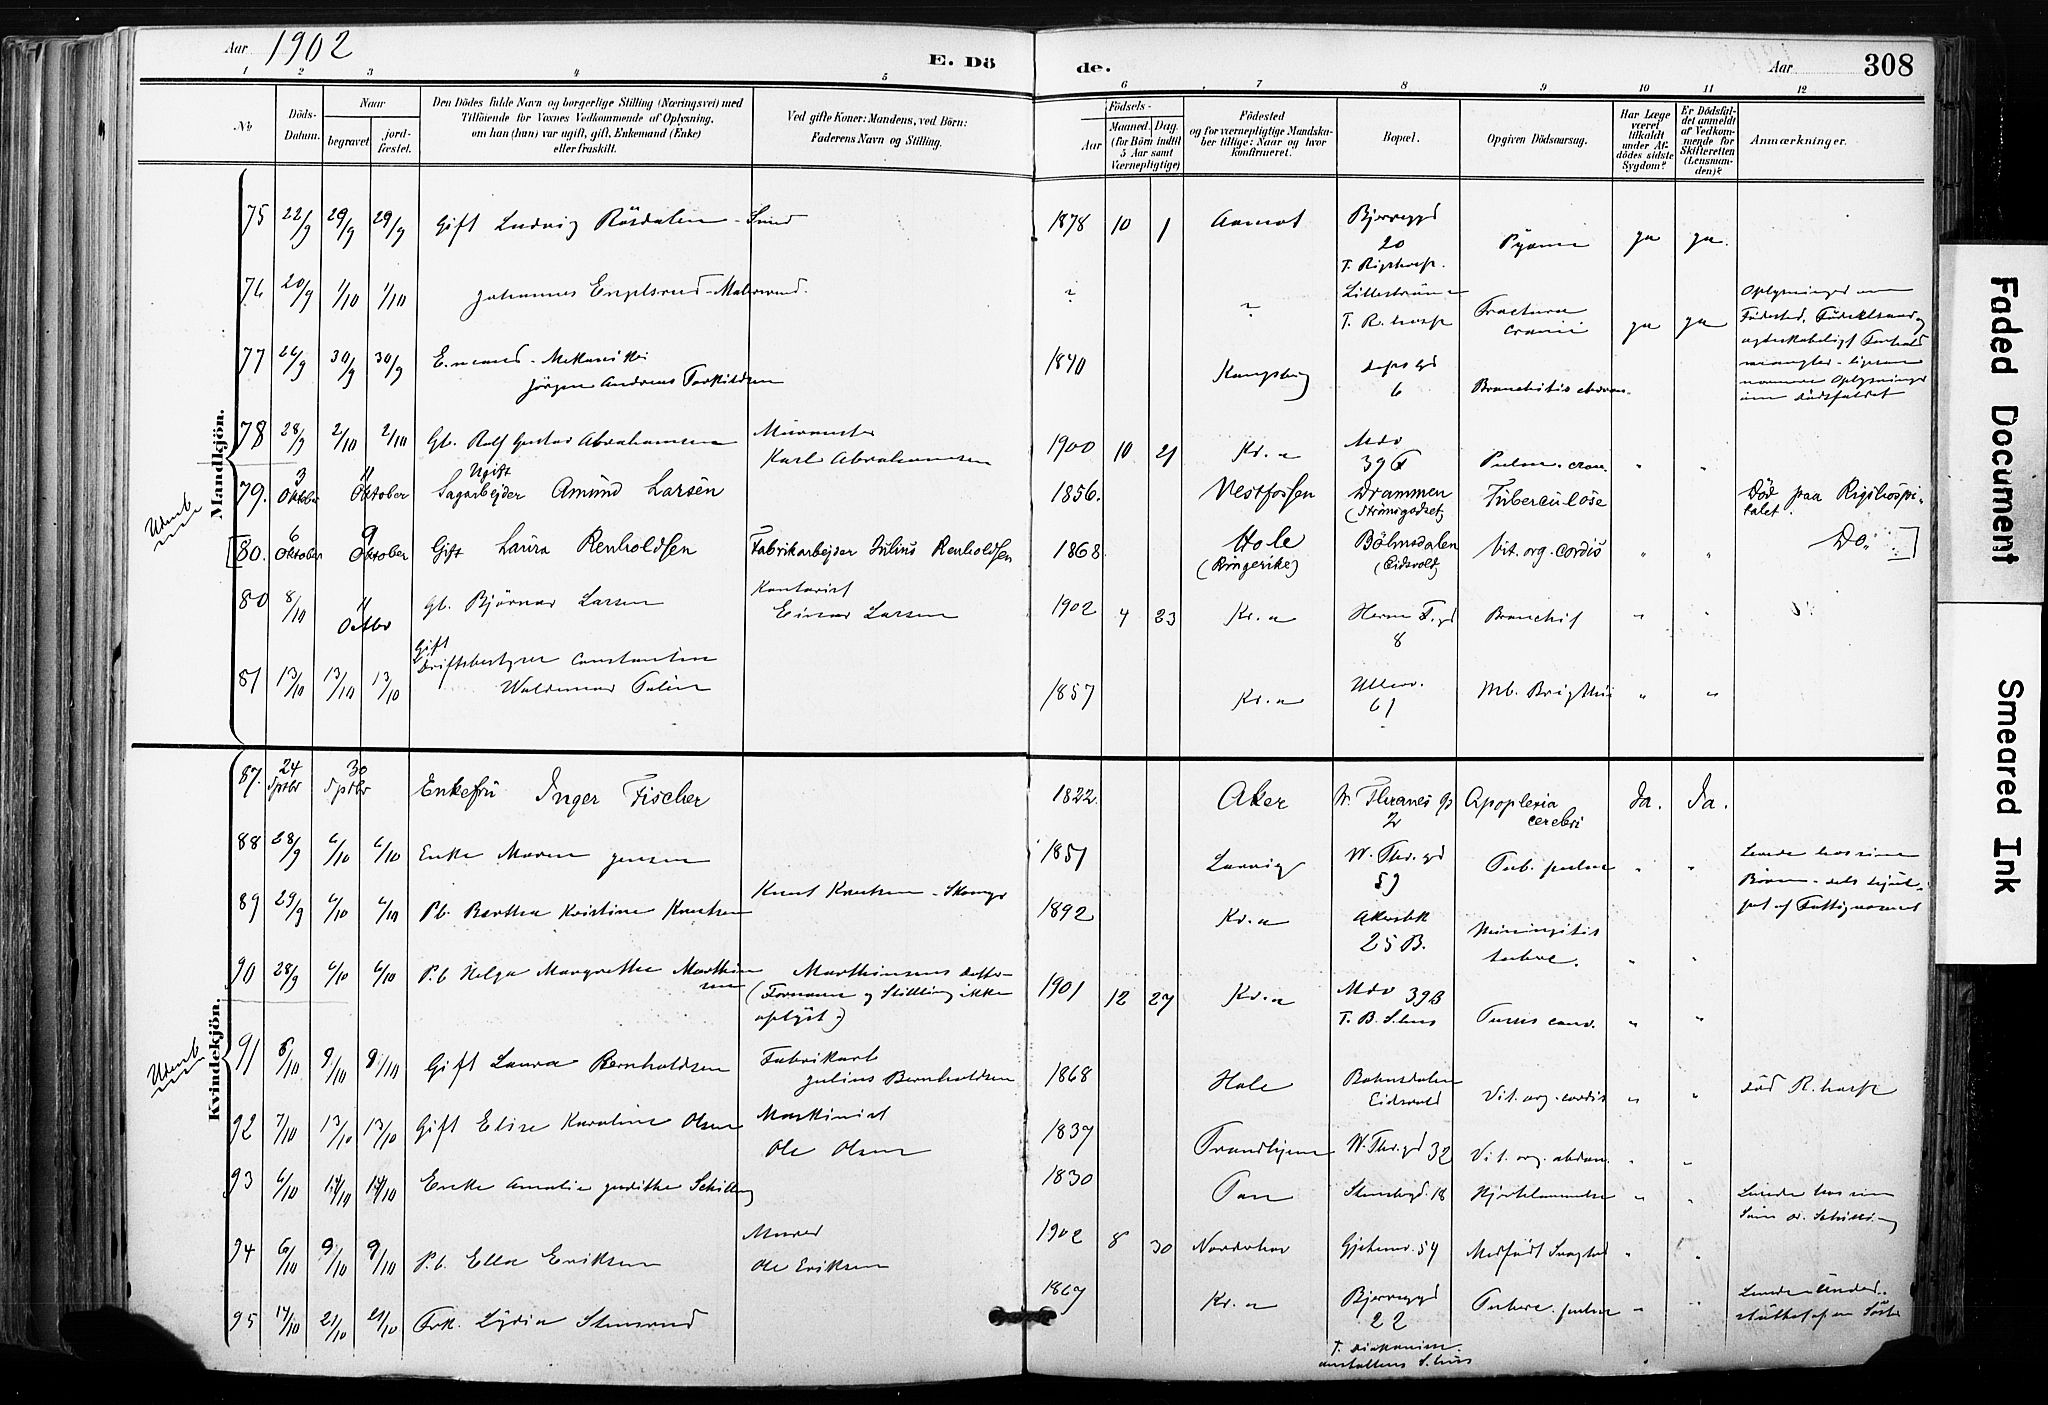 Aar 1902
E. Dö
de.
Aar
308
1 2 3 4 5 6 7 8 9 10 11 12
No
Döds-Datum.
Naar
begravet
jord-fæstet.
Den Dödes fulde Navn og borgerlige Stilling (Næringsvei) med
Tilföiende for Voxnes Vedkommende af Oplysning,
om han (hun) var ugift, gift, Enkemand (Enke)
eller fraskilt.
Ved gifte Koner: Mandens, ved Börn:
Faderens Navn og Stilling.
Födsels-
Aar
Maaned. Dag.
(for Börn indtil
5 Aar samt
Værnepligtige)
Födested
og for værnepligtige Mandska-
ber tillige: Naar og hvor
konfirmeret.
Bopæl.
Opgiven Dödsaarsag.
Har Læge
været
tilkaldt
under Af-
dödes sidste
Sygdom?
Er Dödsfal-
det anmeldt
af Vedkom-
mende for
Skifteretten
(Lensman-
den)?
Anmærkninger.
Mandkjön.
75 22/9 29/9 29/9 Gift Ludvig Rösdalen - Smed 1878 10 1 Aamot Bjerregd 20 T. Rigshosp. Pyæmi ja ja.
76 20/9 1/10 1/10 Johannes Engelsrud - Malersvend. ? ? T. R. hosp Fractura cranii ja ja Oplysninger om
Födested, Födselsaar og
77 26/9 30/9 30/9 E.mand - Mekaniker
Jörgen Andreas Torkildsen 1840 Kongsberg 6 Bronchitis chron.
mangler ligesom
nærmere Oplysninger
om Dödsfaldet
78 28/9 2/10 2/10 Gb. Rolf Gustav Abrahamsen Murmester
Karl Abrahamsen 1900 10 21 Kr.a Mdv 39 F Pulm. cron. " "
79. 3 Oktober 11 Oktober Ugift
Sagarbejder Amund Larsen 1856. Vestfossen Drammen (Strömsgodset) Tuberculose Död paa Rigshospi-
talet.
Udenb
[80. 6 Oktober 9 Oktober Gift Laura Renholdsen Fabrikarbejder Julius Renholdsen 1868 Hole (Ringerike) Bölnsdalen (Eidsvold) Vit. org. cordis " " Do. ]
80 8/10 11 Octbr Gb. Bjørnar Larsen Kontorist
Einar Larsen 1902 4 23 Kr.a Herm F. gd 8 Bronchit " "
81 13/10 13/10 13/10 Gift
Driftsbestyrer Constantin
Waldemar Talin 1857 Kr.a Ullev. 61 Mb. Brigthii " "
Kvindekjön.
87. 24 Sptbr 30 Sptbr Enkefru Inger Fischer 1822. Aker W. Thranes g 2 Apoplexia cerebri Ja. Ja.
88 28/9 6/10 6/10 Enke Maren Jensen 1851 Larvig W. Thr. gd 59 Tub. pulm " " Levede hos sine
Börn - dels hjul-
pet af Fattigvæsenet
89 29/9 6/10 6/10 Pb. Bertha Kristine Knutsen Knut Knutsen - Skomgr 1892 Kr.a Akersbk 25 B. Meningitis tuberc.
90 28/9 6/10 6/10 P.b Helga Margrethe Marthin
sen Marthinsens Datter
(Fornavn og Stilling ikke
oplyst.) 1901 12 27 Kr.a Mdv 39B T. B. S.hus Tussis conv. " "
Udenb
91 6/10 9/10 9/10 Gift Laura Bernholdsen Fabrikarb
Julius Bernholdsen 1868 Hole Bohnsdalen Eidsvold Vit. org. cordis " " Död R. hosp
92 7/10 13/10 13/10 Gift Elise Karoline Olsen Maskinist
Ole Olsen 1837 Trondhjem W. Thr. gd 32 Vit. org. abdom. " "
93 6/10 14/10 14/10 Enke Amalie Judithe Schilling 1830 Stensbgd. 18 Hjertelammelse " " Levede hos sin
Sön
94 6/10 9/10 9/10 P.b. Ella Eriksen Murer
Ole Eriksen 1902 8 30 Norderhov Gjetemv. 54 Medfödt Svaghed " "
95 17/10 21/10 21/10 Frk. Lydia Stensrud 1867 Kr.a Bjerregd 22 Tuberc. pulm " "
T. Diakonisse-
anstaltens S.hus
Faded Document
Smeared Ink